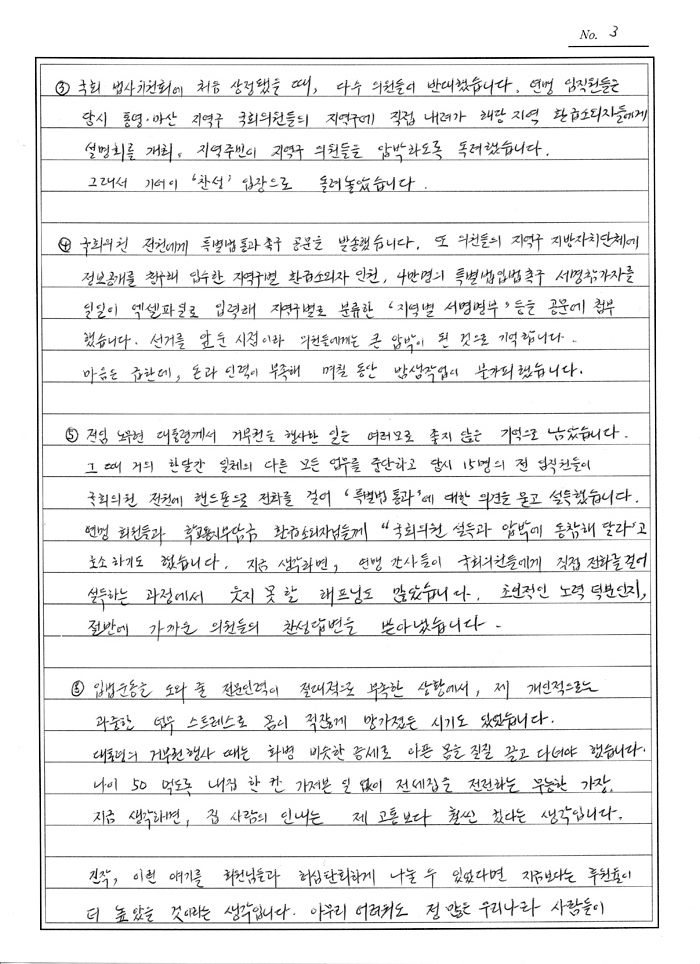 No. 3
③ 국회 법사위원회에 처음 상정됐을 때, 다수 의원들이 반대했습니다. 연맹 임직원들은
당시 통영·마산 지역구 국회의원들의 지역구에 직접 내려가 해당 지역 환급소외자들에게
설명회를 개최, 지역주민이 지역구 의원들을 압박하도록 독려했습니다.
그래서 기어이 '찬성' 입장으로 돌려놓았습니다.
④ 국회의원 전원에게 특별법 통과 촉구 공문을 발송했습니다. 또 의원들의 지역구 지방자치단체에
정보공개를 청구해 입수한 지역구별 환급소외자 인원, 4만명의 특별법입법촉구 서명참가자를
일일이 엑셀파일로 입력해 지역구별로 분류한 '지역별 서명명부' 등을 공문에 첨부
했습니다. 선거를 앞둔 시점이라 의원들에게는 큰 압박이 된 것으로 기억합니다.
마음은 급한데, 돈과 인력이 부족해 며칠 동안 밤샘작업이 불가피했습니다.
⑤ 전임 노무현 대통령께서 거부권을 행사한 일은 여러모로 좋지 않은 기억으로 남았습니다.
그 때 거의 한달간 일체의 다른 모든 업무를 중단하고 당시 15명의 전 임직원들이
국회의원 전원에 핸드폰으로 전화를 걸어 '특별법 통과'에 대한 의견을 묻고 설득했습니다.
연맹 회원들과 학교용지부담금 환급소외자님들께 "국회의원 설득과 압박에 동참해 달라"고
호소하기도 했습니다. 지금 생각하면, 연맹 간사들이 국회의원들에게 직접 전화를 걸어
설득하는 과정에서 웃지 못할 해프닝도 많았습니다. 초인적인 노력 덕분인지,
절반에 가까운 의원들의 찬성답변을 받아냈습니다.
⑥ 입법운동을 도와 줄 전문인력이 절대적으로 부족한 상황에서, 제 개인적으로는
과중한 업무 스트레스로 몸이 적잖게 망가졌던 시기도 있었습니다.
대통령의 거부권행사 때는 화병 비슷한 증세로 아픈 몸을 질질 끌고 다녀야 했습니다.
나이 50 먹도록 내집 한 칸 가져본 일 없이 전세집을 전전하는 무능한 가장.
지금 생각하면, 집 사람의 인내는 제 고통보다 훨씬 컸다는 생각입니다.
진작, 이런 얘기를 회원님들과 허심탄회하게 나눌 수 있었다면 지금보다는 후원율이
더 높았을 것이라는 생각입니다. 아무리 어려워도 정 많은 우리나라 사람들이